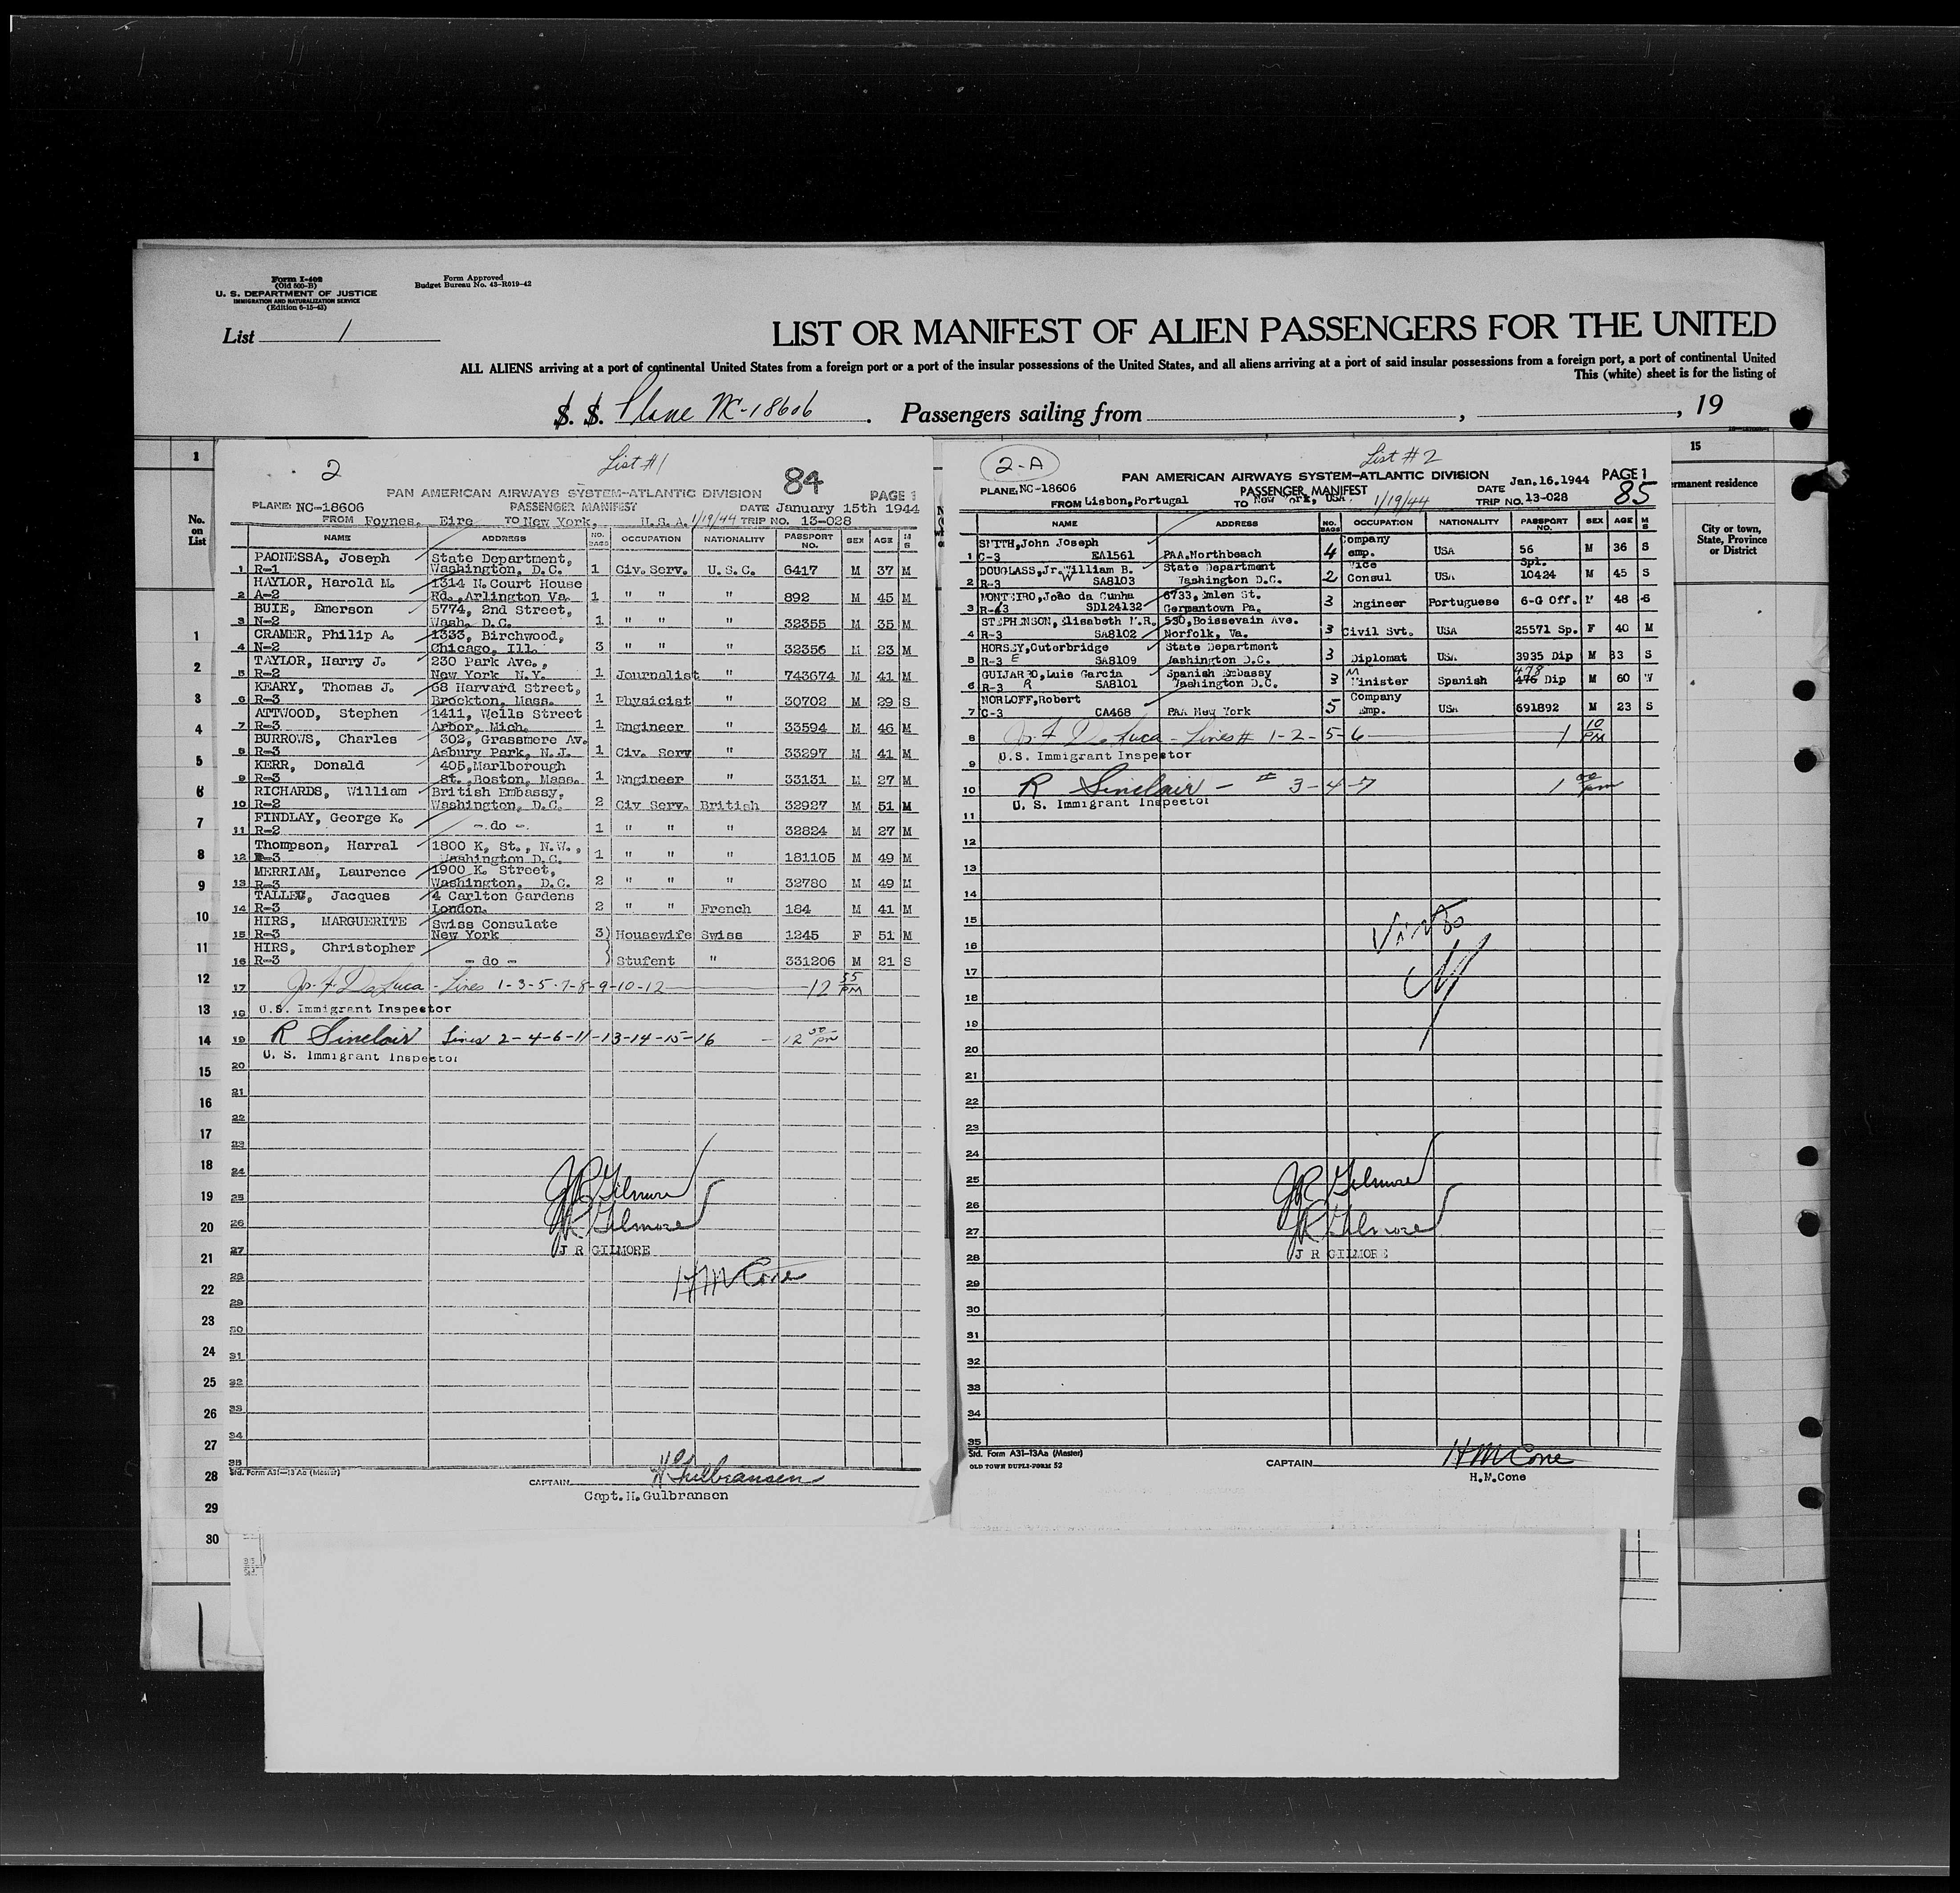 Form I-402
(Old 500-B)
U. S. DEPARTMENT OF JUSTICE
IMMIGRATION AND NATURALIZATION SERVICE
(Edition 6-15-43)
Form Approved
Budget Bureau No. 43-R019-42
List 1
LIST OR MANIFEST OF ALIEN PASSENGERS FOR THE UNITED
ALL ALIENS arriving at a port of continental United States from a foreign port or a port of the insular possessions of the United States, and all aliens arriving at a port of said insular possessions from a foreign port, a port of continental United
This (white) sheet is for the listing of
S. S. Plane NC-18606. Passengers sailing from , , 19
1
No. on List
1
2
3
4
5
6
7
8
9
10
11
12
13
14
15
16
17
18
19
20
21
22
23
24
25
26
27
28
29
30
2 List #1 84
PAN AMERICAN AIRWAYS SYSTEM–ATLANTIC DIVISION PAGE 1
PLANE: NC-18606 PASSENGER MANIFEST DATE January 15th 1944
FROM Foynes, Eire TO New York, U.S.A. 1/19/44 TRIP NO. 13-028
NAME ADDRESS NO. BAGS OCCUPATION NATIONALITY PASSPORT NO. SEX AGE M S
PAONESSA, Joseph State Department,
1 R-1 Washington, D.C. 1 Civ. Serv. U.S.C. 6417 M 37 M
HAYLOR, Harold M. 1314 N. Court House
2 A-2 Rd., Arlington Va. 1 " " " 892 M 45 M
BUIE, Emerson 5774, 2nd Street,
3 N-2 Wash. D.C. 1 " " " 32355 M 35 M
CRAMER, Philip A. 1333, Birchwood,
4 N-2 Chicago, Ill. 3 " " " 32356 M 23 M
TAYLOR, Harry J. 230 Park Ave.,
5 R-2 New York N.Y. 1 Journalist " 743674 M 41 M
KEARY, Thomas J. 68 Harvard Street,
6 R-3 Brockton, Mass. 1 Physicist " 30702 M 29 S
ATTWOOD, Stephen 1411, Wells Street
7 R-3 Arbor, Mich. 1 Engineer " 33594 M 46 M
BURROWS, Charles 302, Grassmere Av.
8 R-3 Asbury Park, N.J. 1 Civ. Serv " 33297 M 41 M
KERR, Donald 405,Marlborough
9 R-3 St. Boston, Mass. 1 Engineer " 33131 M 27 M
RICHARDS, William British Embassy,
10 R-2 Washington, D.C. 2 Civ Serv. British 32927 M 51 M
FINDLAY, George K.
11 R-2 - do - 1 " " " 32824 M 27 M
Thompson, Harral 1800 K, St., N.W.,
12 R-3 Washington D.C. 1 " " " 181105 M 49 M
MERRIAM, Laurence 1900 K. Street,
13 R-3 Washington, D.C. 2 " " " 32780 M 49 M
TALLEC, Jacques 4 Carlton Gardens
14 R-3 London. 2 " " French 184 M 41 M
HIRS, MARGUERITE Swiss Consulate
15 R-3 New York 3) Housewife Swiss 1245 F 51 M
HIRS, Christopher
16 R-3 - do - ) Stufent " 331206 M 21 S
17 Jos. F. DeLuca - Lines 1-3-5-7-8-9-10-12 12 55 PM
18 U.S. Immigrant Inspector
19 R Sinclair Lines 2-4-6-11-13-14-15-16 - 12 50 pm
U. S. Immigrant Inspector
20
21
22
23
24
25 JR Gilmore
26 JR Gilmore
27 J R GILMORE
28 HM Cone
29
30
31
32
33
34
35
Std. Form A31-13 Aa (Master)
CAPTAIN H Gulbransen
Capt. H. Gulbransen
2-A List #2
PAN AMERICAN AIRWAYS SYSTEM–ATLANTIC DIVISION PAGE 1
PLANE: NC-18606 PASSENGER MANIFEST DATE Jan.16.1944 85
FROM Lisbon, Portugal TO New York, USA. 1/19/44 TRIP NO. 13-028
NAME ADDRESS NO. BAGS OCCUPATION NATIONALITY PASSPORT NO. SEX AGE M S
SMITH,John Joseph Company
1 C-3 EA1561 PAA.Northbeach 4 emp. USA 56 M 36 S
DOUGLASS,Jr.William B. State Department Vice Spl.
2 R-3 W SA8103 Washington D.C. 2 Consul USA 10424 M 45 S
MONTEIRO,João da Cunha 6733, Emlen St.
3 R-3 SD124132 Germantown Pa. 3 Engineer Portuguese 6-G Off. M 48 S
STEPHENSON,Elisabeth M.R. 530,Boissevain Ave.
4 R-3 SA8102 Norfolk, Va. 3 Civil Svt. USA 25571 Sp. F 40 M
HORSEY,Outerbridge State Department
5 R-3 E SA8109 Washington D.C. 3 Diplomat USA 3935 Dip M 33 S
GUIJARRO,Luis Garcia Spanish Embassy M 478
6 R-3 R SA8101 Washington D.C. 3 Minister Spanish 476 Dip M 60 W
NORLOFF,Robert Company
7 C-3 CA468 PAA New York 5 Emp. USA 691892 M 23 S
8 Jos. F DeLuca - Lines # 1-2-5-6 1 10 PM
9 U.S. Immigrant Inspector
10 R Sinclair - # 3-4-7 1 00 pm
U. S. Immigrant Inspector
11
12
13
14
15
16
17
18
19
20
21
22
23
24
25 JR Gilmore
26
27 JR Gilmore
28 J R GILMORE
29
30
31
32
33
34
35
Std. Form A31-13Aa (Master)
OLD TOWN DUPLI-FORM 52
CAPTAIN HM Cone
H.M.Cone
15
rmanent residence
City or town, State, Province or District